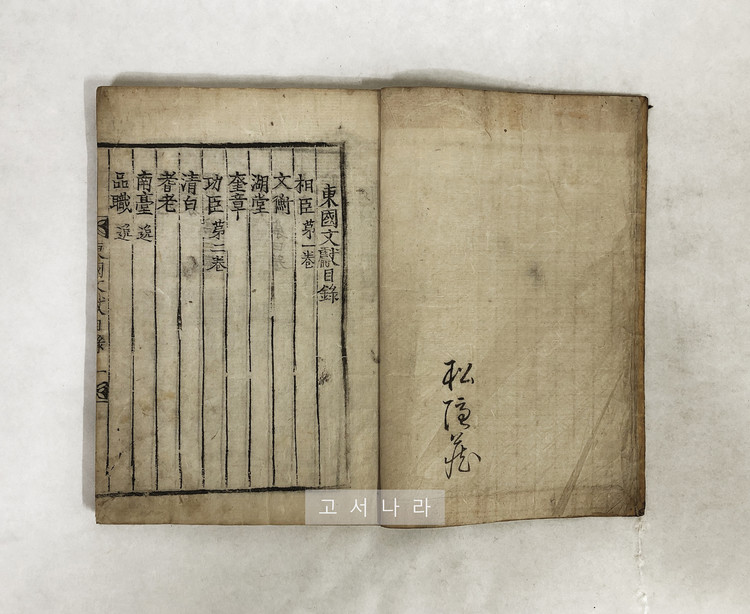 松隱藏
東國文獻目錄
相臣 第一卷
文衡
湖堂
奎章
功臣 第二卷
清白
耆老
南臺 追
品職 追
東國文獻目錄 一
고서나라